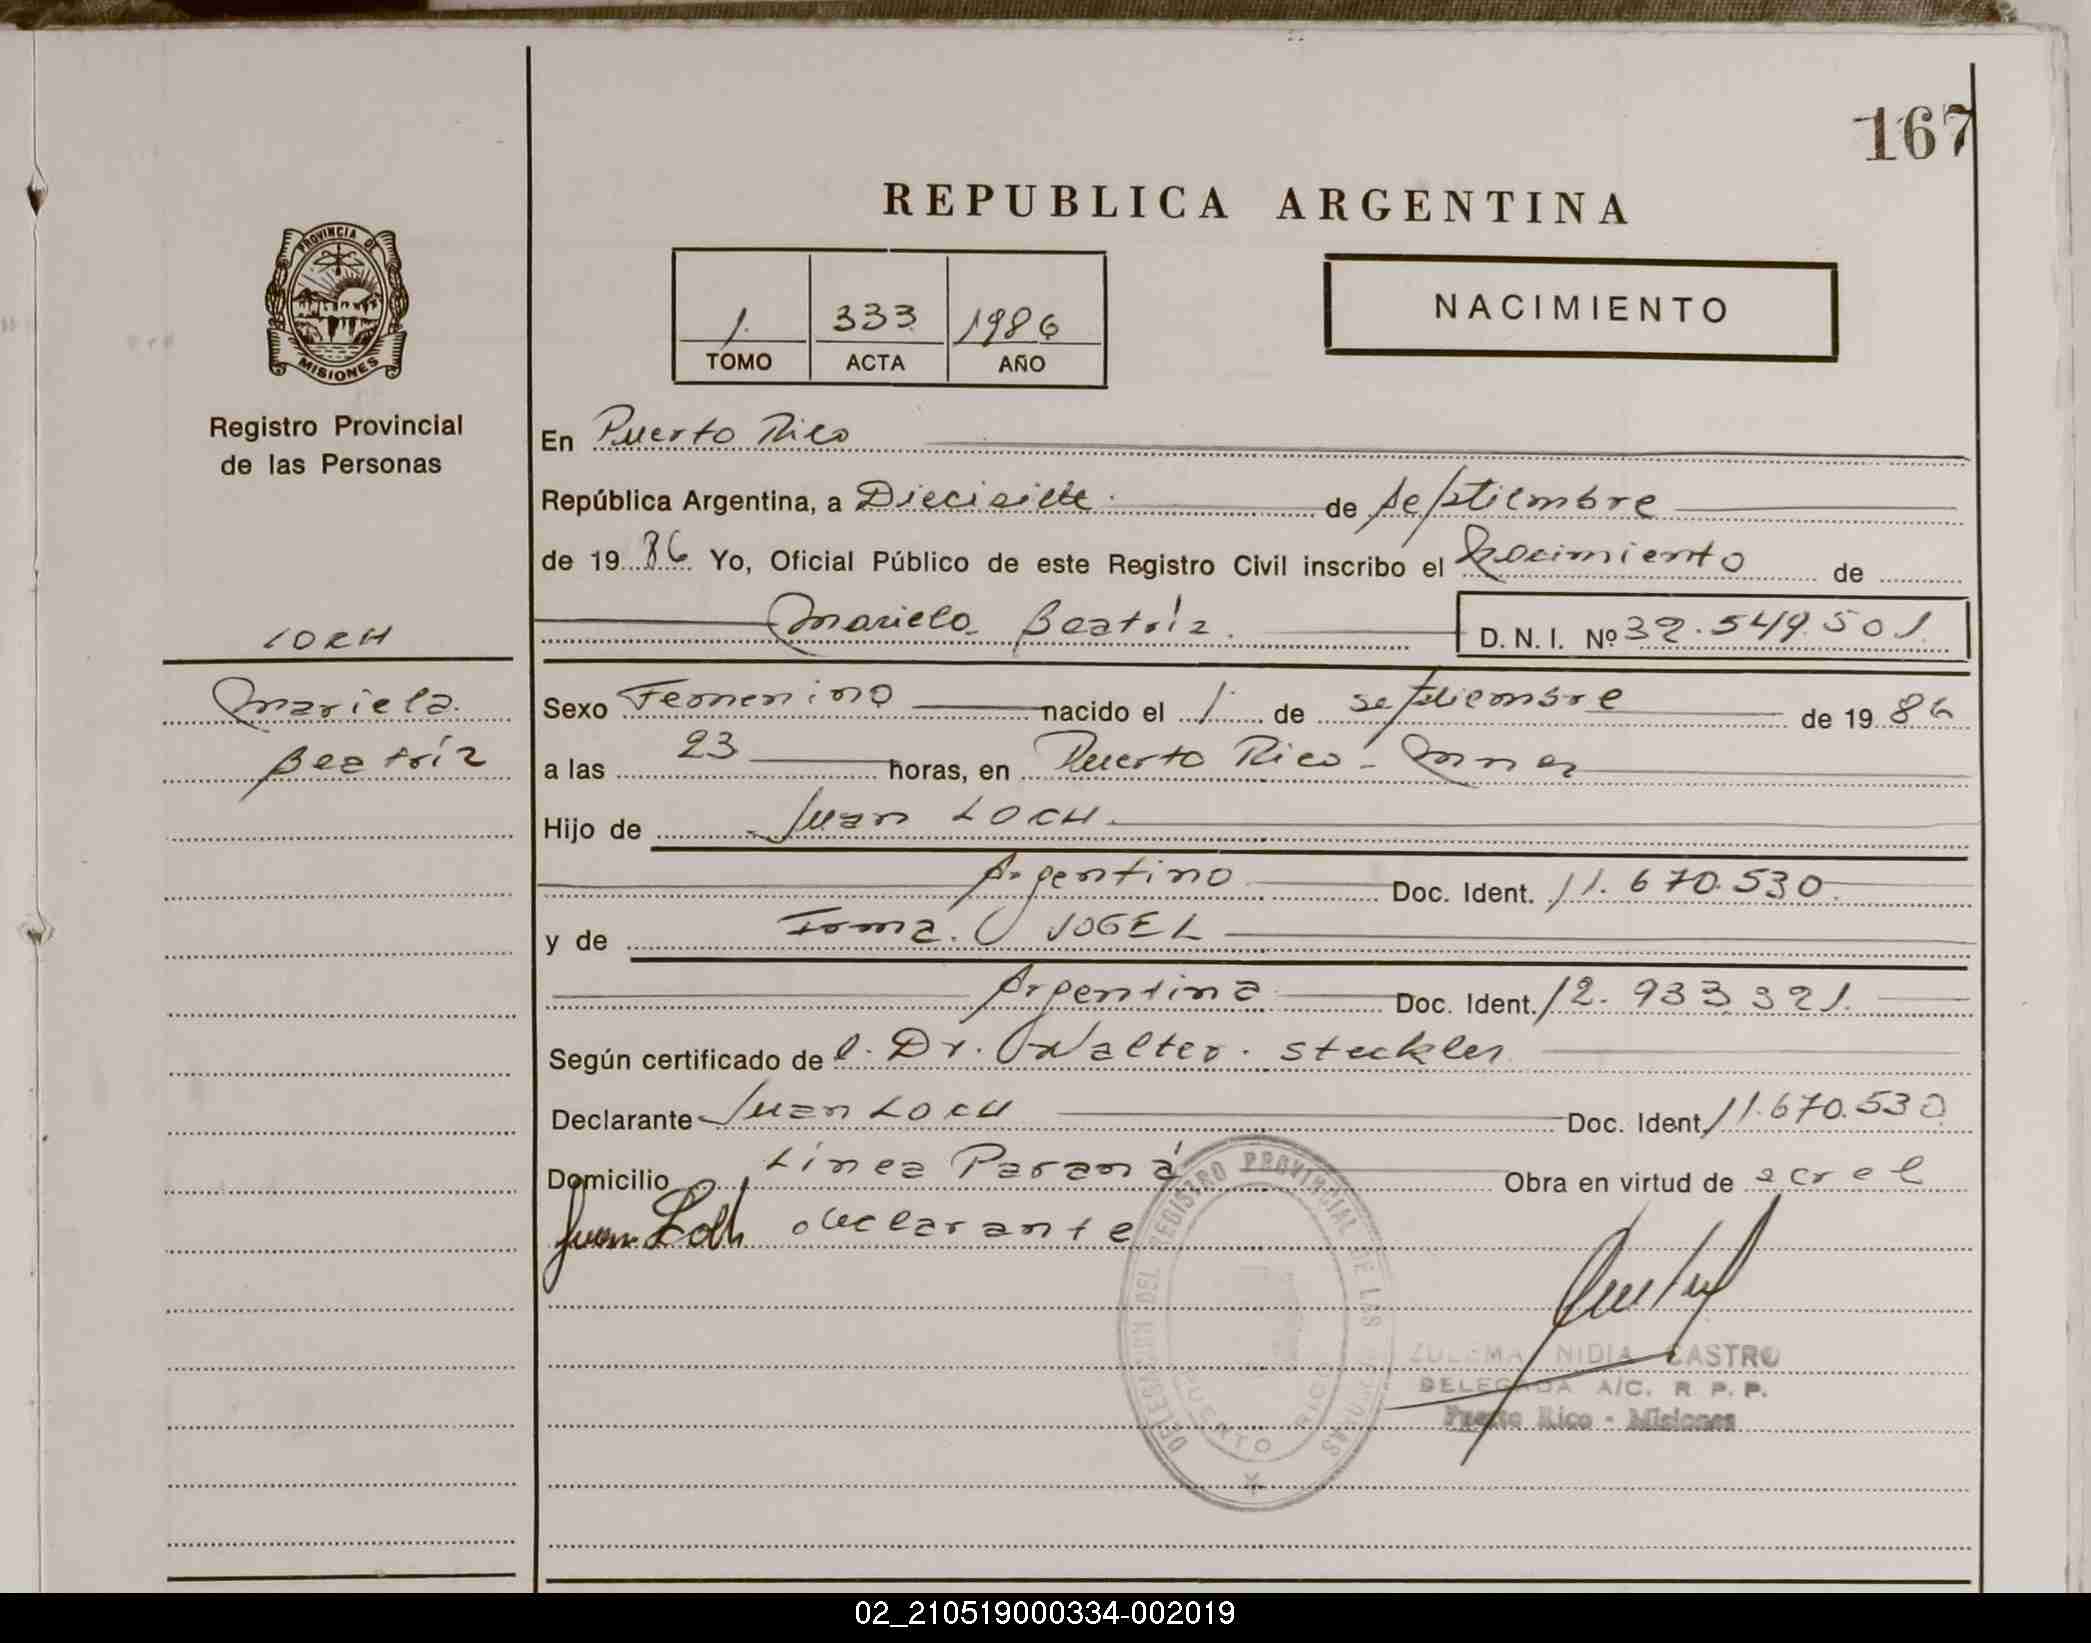 167
REPUBLICA ARGENTINA
PROVINCIA DE
MISIONES
1. 333 1986
TOMO ACTA AÑO
NACIMIENTO
Registro Provincial
de las Personas
LOCH
Mariela
Beatríz
En Puerto Rico
República Argentina, a Diecisiete de septiembre
de 1986 Yo, Oficial Público de este Registro Civil inscribo el Nacimiento de
Mariela Beatríz. D. N. I. Nº 32.549.501
Sexo Femenino nacido el 1 de septiembre de 1986
a las 23 horas, en Puerto Rico - Mnes
Hijo de Juan LOCH
Argentino Doc. Ident. 11.670.530
y de Irma VOGEL
Argentina Doc. Ident. 12.933.321
Según certificado del Dr. Walter Steckler
Declarante Juan LOCH Doc. Ident. 11.670.530
Domicilio Línea Paraná Obra en virtud de ser el
Juan Loch declarante
DELEGACION DEL REGISTRO PROVINCIAL DE LAS PERSONAS
PUERTO RICO
ZULEMA NIDIA CASTRO
DELEGADA A/C. R. P. P.
Puerto Rico - Misiones
02_210519000334-002019